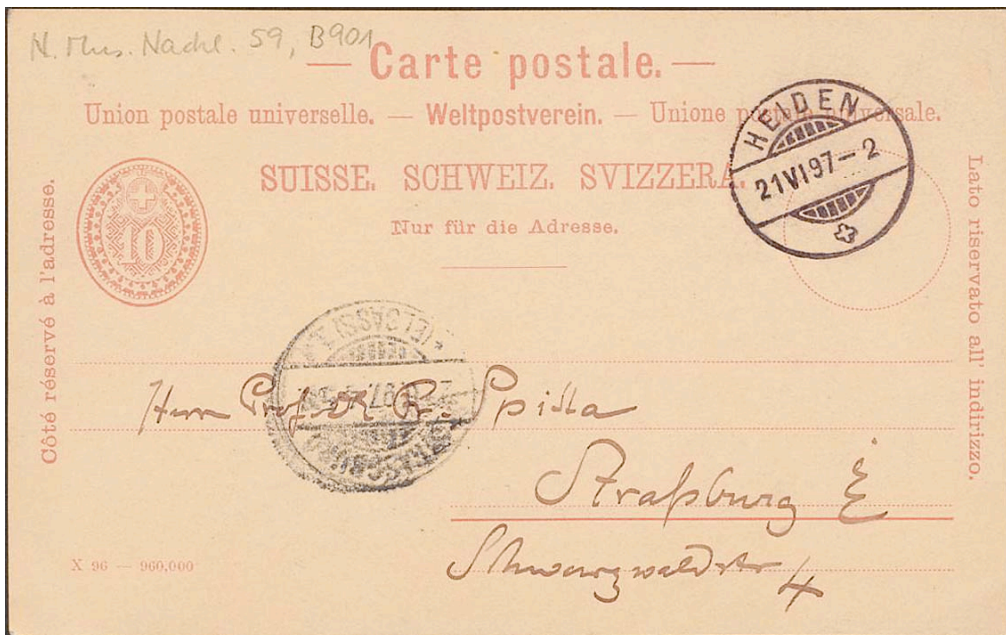 N. Mus. Nachl. 59, B901
— Carte postale. —
Union postale universelle. — Weltpostverein. — Unione postale universale.
HEIDEN
21 VI 97 – 2
SUISSE. SCHWEIZ. SVIZZERA.
Nur für die Adresse.
10
Côté réservé à l'adresse.
Lato riservato all' indirizzo.
STRASSBURG
(ELSASS)
Herrn Prof. Spitta
Straßburg E
Schwarzwaldstr 4
X 96 — 960,000